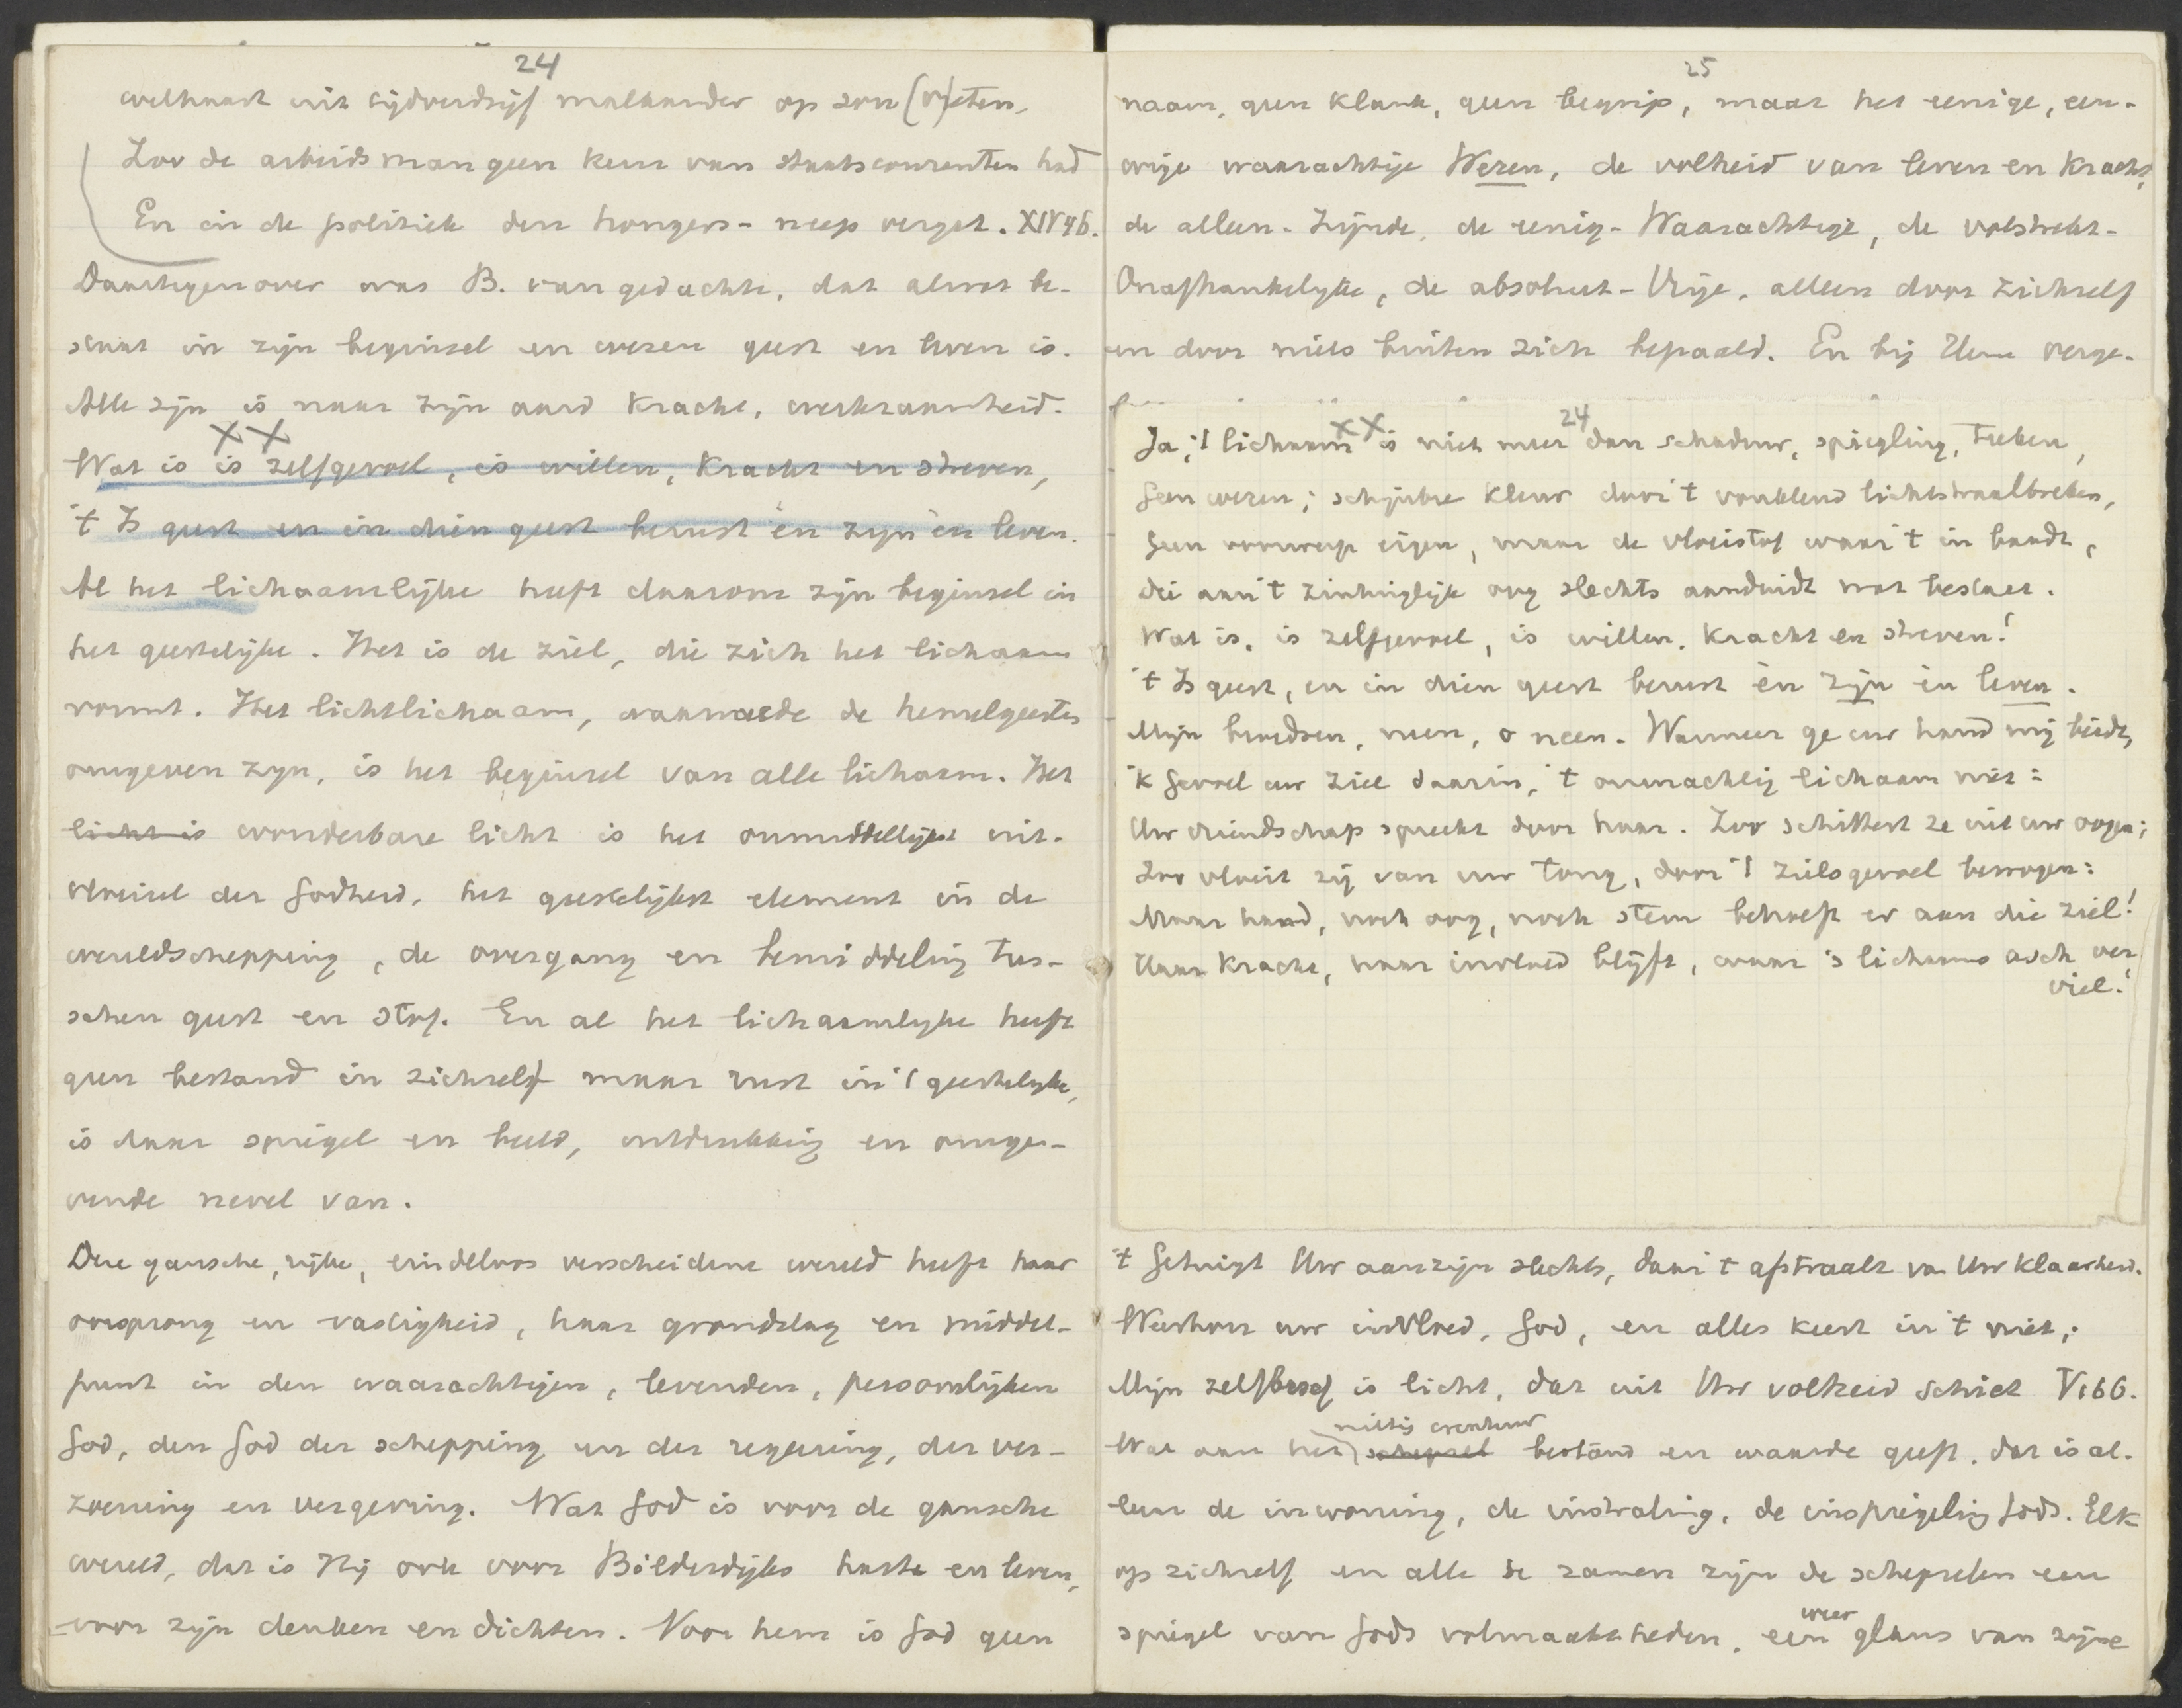 24
welhaast uit tijdverdrijf malkander op zou (v)reten,
Zoo de arbeidsman geen keur van staatscouranten had
En in de politiek den hongers-neep vergat. XIV 46.
Daartegenover was B. van gedachte, dat alwat be-
staat in zijn beginsel en wezen geest en leven is.
Alle zijn is naar zijn aard kracht, werkzaamheid.
XX
Wat is is zelfgevoel, is willen, kracht en streven,
't Is geest en in dien geest berust èn zijn èn leven.
Al het lichaamlijke heeft daarom zijn beginsel in
het geestelijke. Het is de ziel, die zich het lichaam
vormt. Het lichtlichaam, waarmede de hemelgeesten
omgeven zijn, is het beginsel van alle lichaam. Het
licht is wonderbare licht is het onmiddellijkst uit-
vloeisel der Godheid, het geestelijkst element in de
wereldschepping, de overgang en bemiddeling tus-
schen geest en stof. En al het lichaamlijke heeft
geen bestand in zichzelf maar rust in 't geestelijke,
is daar spiegel en beeld, uitdrukking en omge-
vende nevel van.
Deze gansche, rijke, eindeloos verscheidene wereld heeft haar
oorsprong en vastigheid, haar grondslag en middel-
punt in den waarachtigen, levenden, persoonlijken
God, den God der schepping en der regeering, der ver-
zoening en vergeving. Wat God is voor de gansche
wereld, dat is Hij ook voor Bilderdijks harte en leven,
voor zijn denken en dichten. Voor hem is God geen
25
naam, geen klank, geen begrip, maar het eenige, eeu-
wige waarachtige Wezen, de volheid van leven en kracht,
de alleen-Zijnde, de eenig-Waarachtige, de volstrekt-
Onafhankelijke, de absoluut-Vrije, alleen door zichzelf
en door niets buiten zich bepaald. En bij Hem verge-
XX 24
Ja, 't lichaam is niet meer dan schaduw, spiegling, teeken,
Geen wezen; schijnbre kleur door 't wanklend lichtstraalbreken,
Geen voorwerp eigen, maar de vloeistof waar 't in baadt,
die aan 't zintuiglijk oog slechts aanduidt wat bestaat.
Wat is, is zelfgevoel, is willen, kracht en streven!
't Is geest, en in dien geest berust èn zijn èn leven.
Mijn bloedzen, neen, o neen. Wanneer ge uw hand mij biedt,
'k Gevoel uw ziel daarin, 't onmachtig lichaam niet:
Uw vriendschap spreekt door haar. Zoo schittert ze uit uw oogen;
Zoo vloeit zij van uw tong, door 't zielsgevoel bewogen:
Maar hand, noch oog, noch stem behoeft er aan die ziel!
Haar kracht, haar invloed blijft, waar 's lichaams asch ver
viel!
't Getuigt Uw aanzijn slechts, daar 't afstraalt van Uw klaarheid.
Weerhou uw invloed, God, en alles keert in 't niet;
Mijn zelfbesef is licht, dat uit Uw volheid schiet V 166.
nietig creatuur
Wat aan het schepsel bestand en waarde geeft, dat is al-
leen de inwoning, de instraling, de inspiegeling Gods. Elk
op zichzelf en alle te zamen zijn de schepselen een
weer
spiegel van Gods volmaaktheden, een glans van zijne